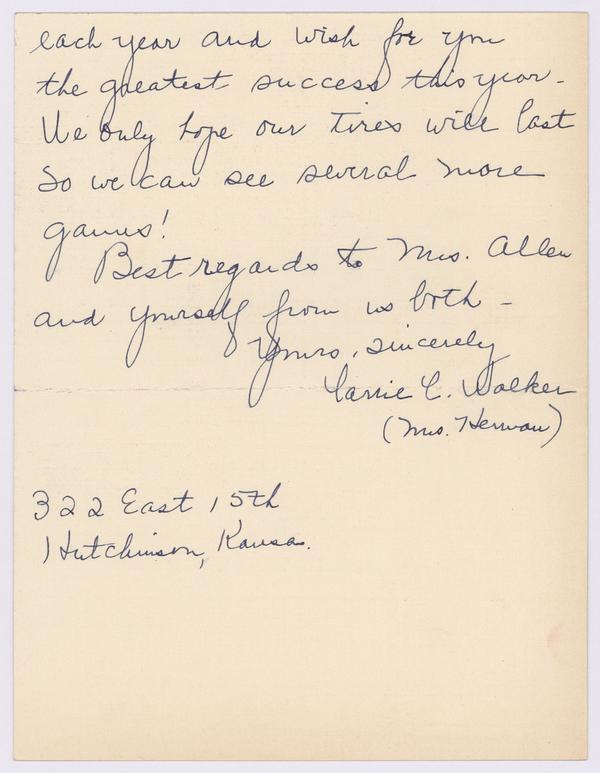 each year and wish for you
the greatest success this year -
We only hope our tires will last
So we can see several more
games!
Best regards to Mrs. Allen
and yourself from us both -
Yours, sincerely
Carrie C. Walker
(Mrs. Herman)
322 East 15th
Hutchinson, Kansas.